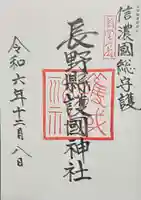 信濃國総守護
長野縣護國神社
令和六年十二月八日